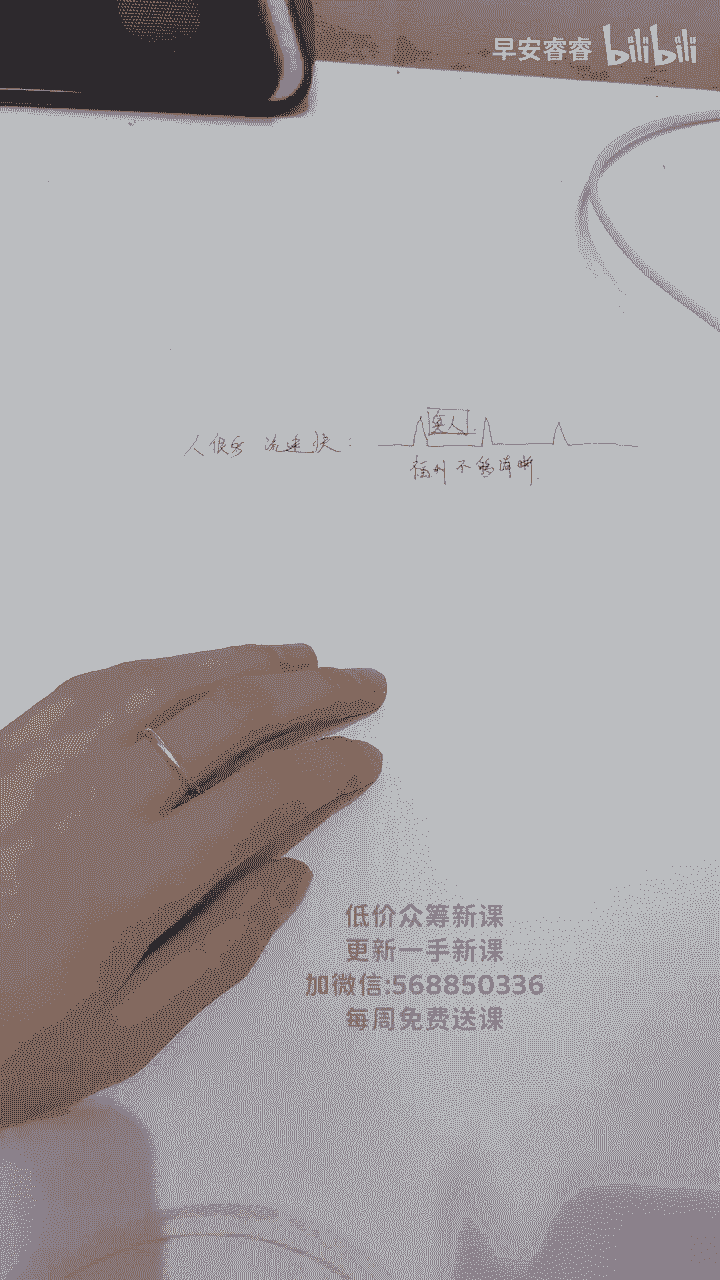 早安睿睿 bilibili
人很多 流速快：
真人
福州不够清晰.
低价众筹新课
更新一手新课
加微信:568850336
每周免费送课